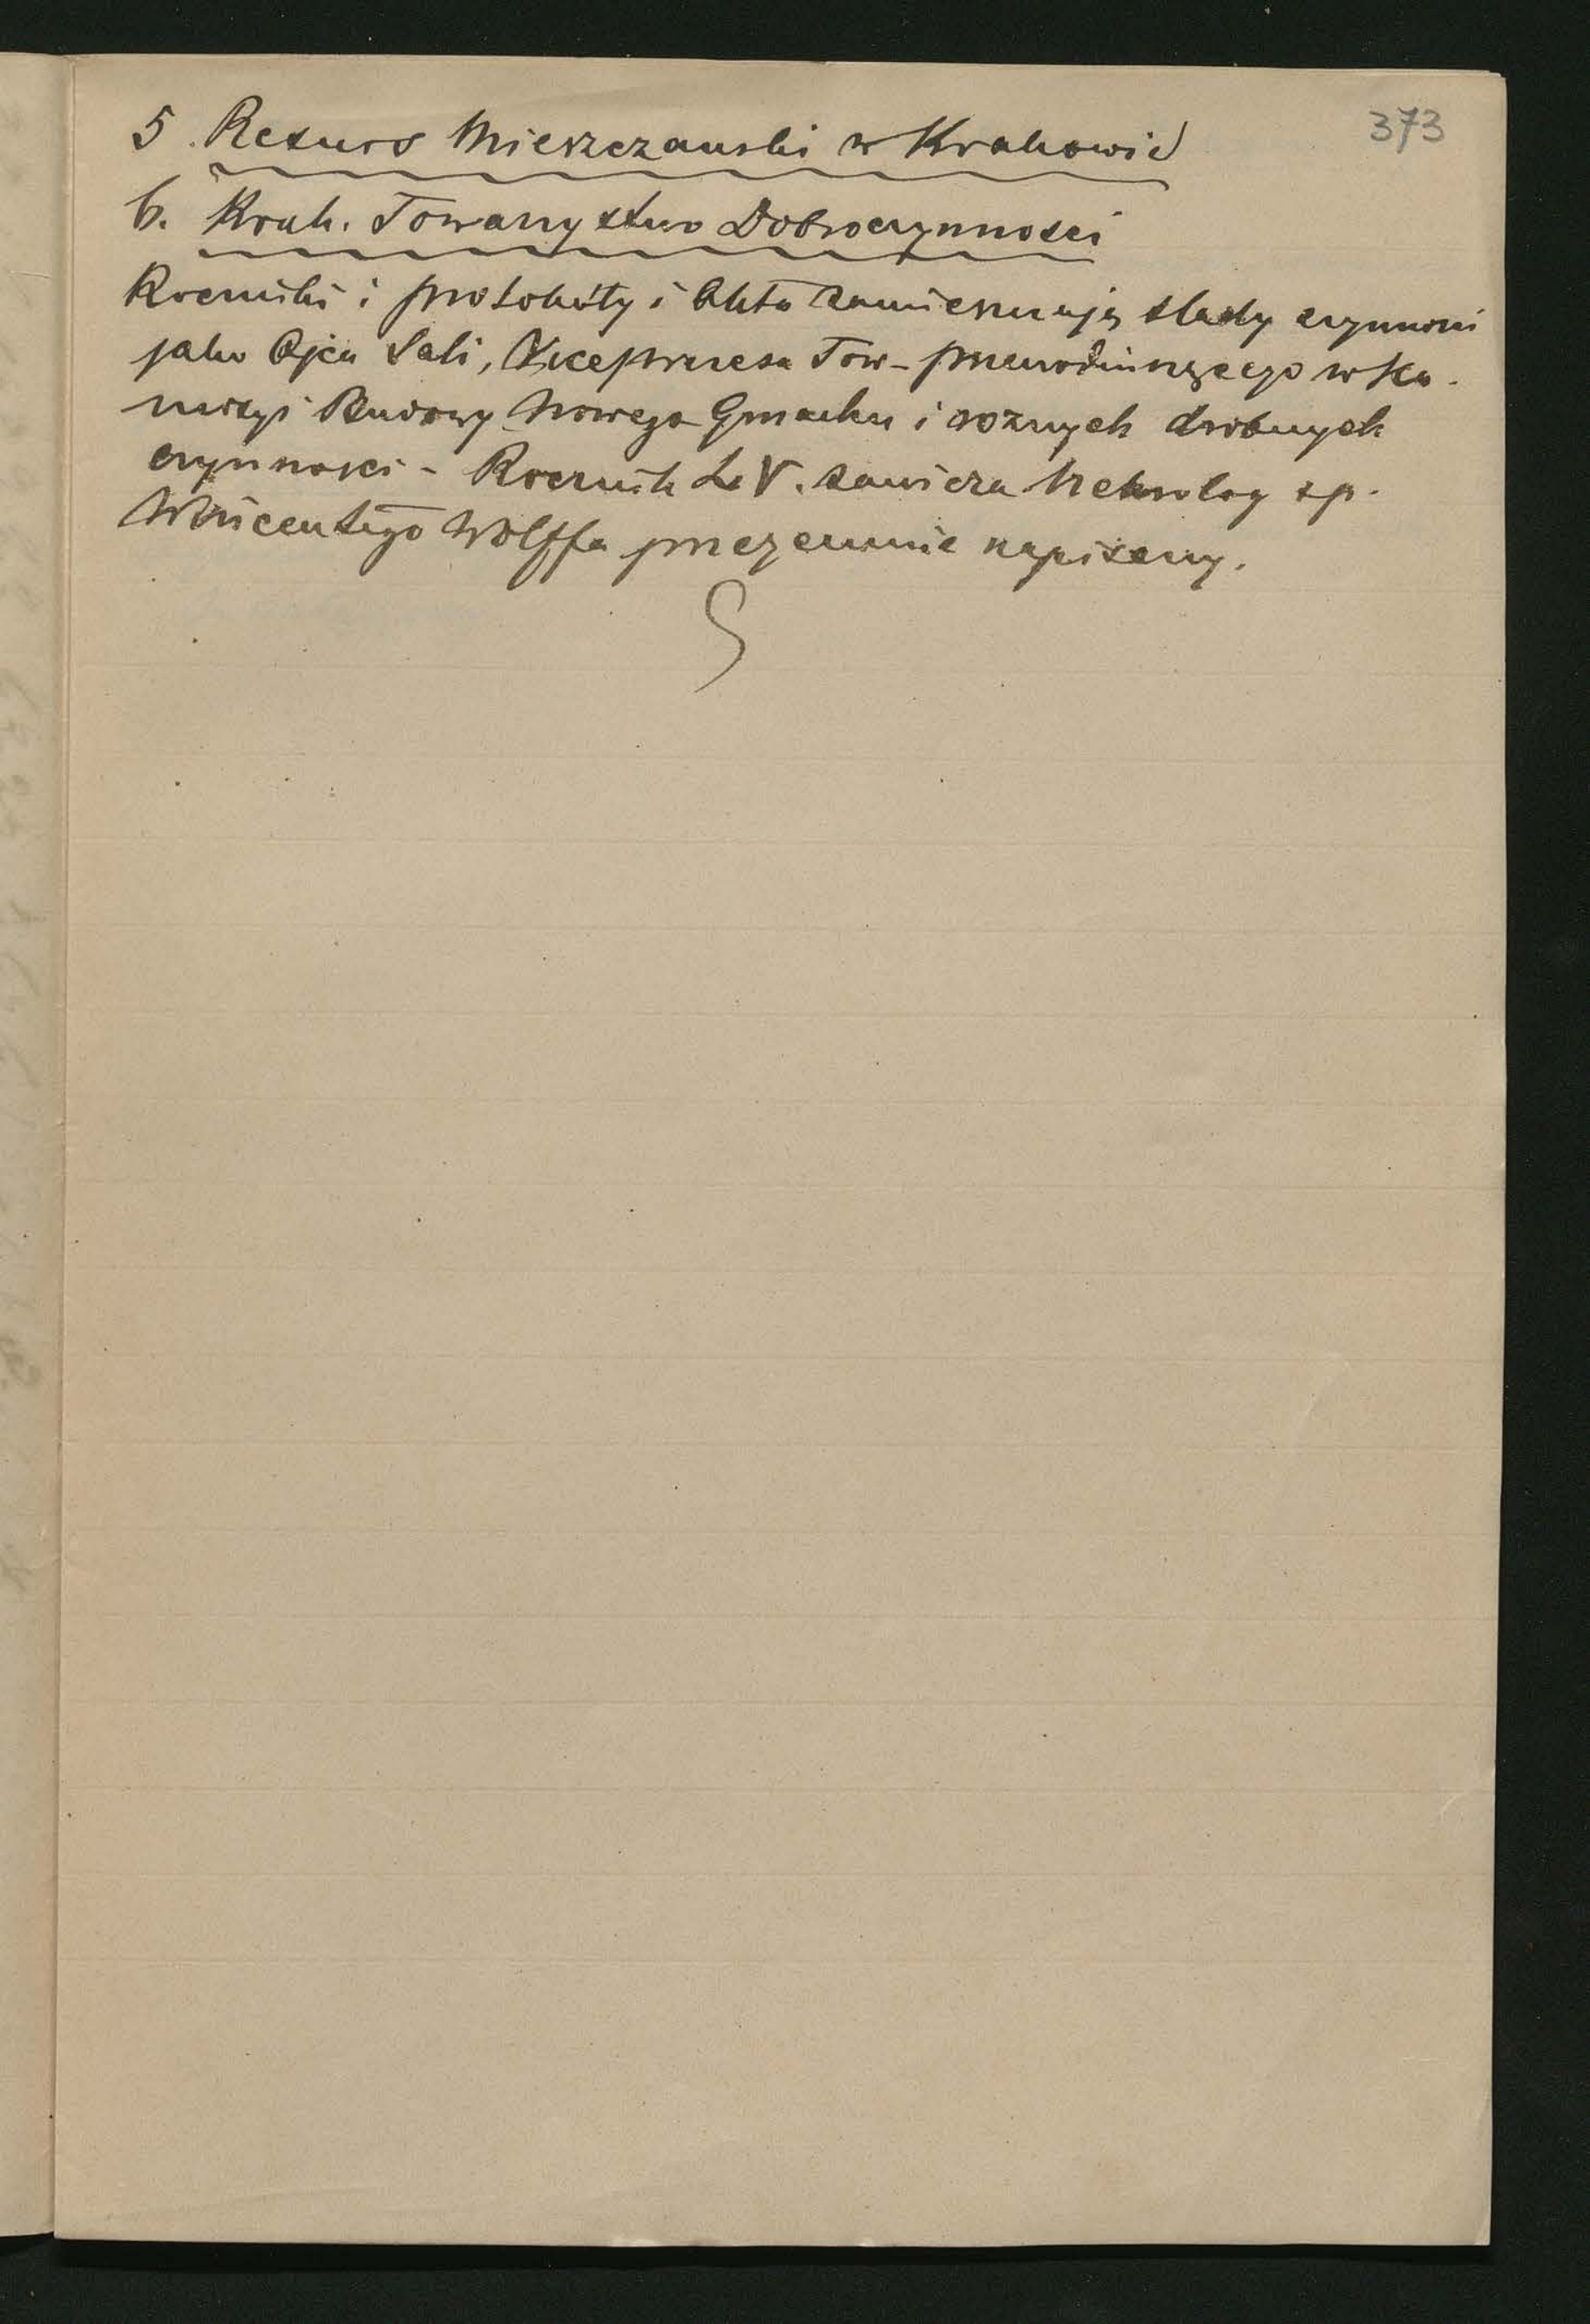 373
5. Resurs Mieszczański w Krakowie
6. Krak. Towarzystwo Dobroczynności
Roczniki i protokóły i Akta zamieszczają ślady czynności
jako Ojca Sali, Viceprezesa Tow- przewodniczącego w Ko-
misyi Budowy Nowego Gmachu i roznych drobnych
czynności - Rocznik LV. zawiera Nekrolog sp.
Wincentego Wolffa przezemnie napisany.